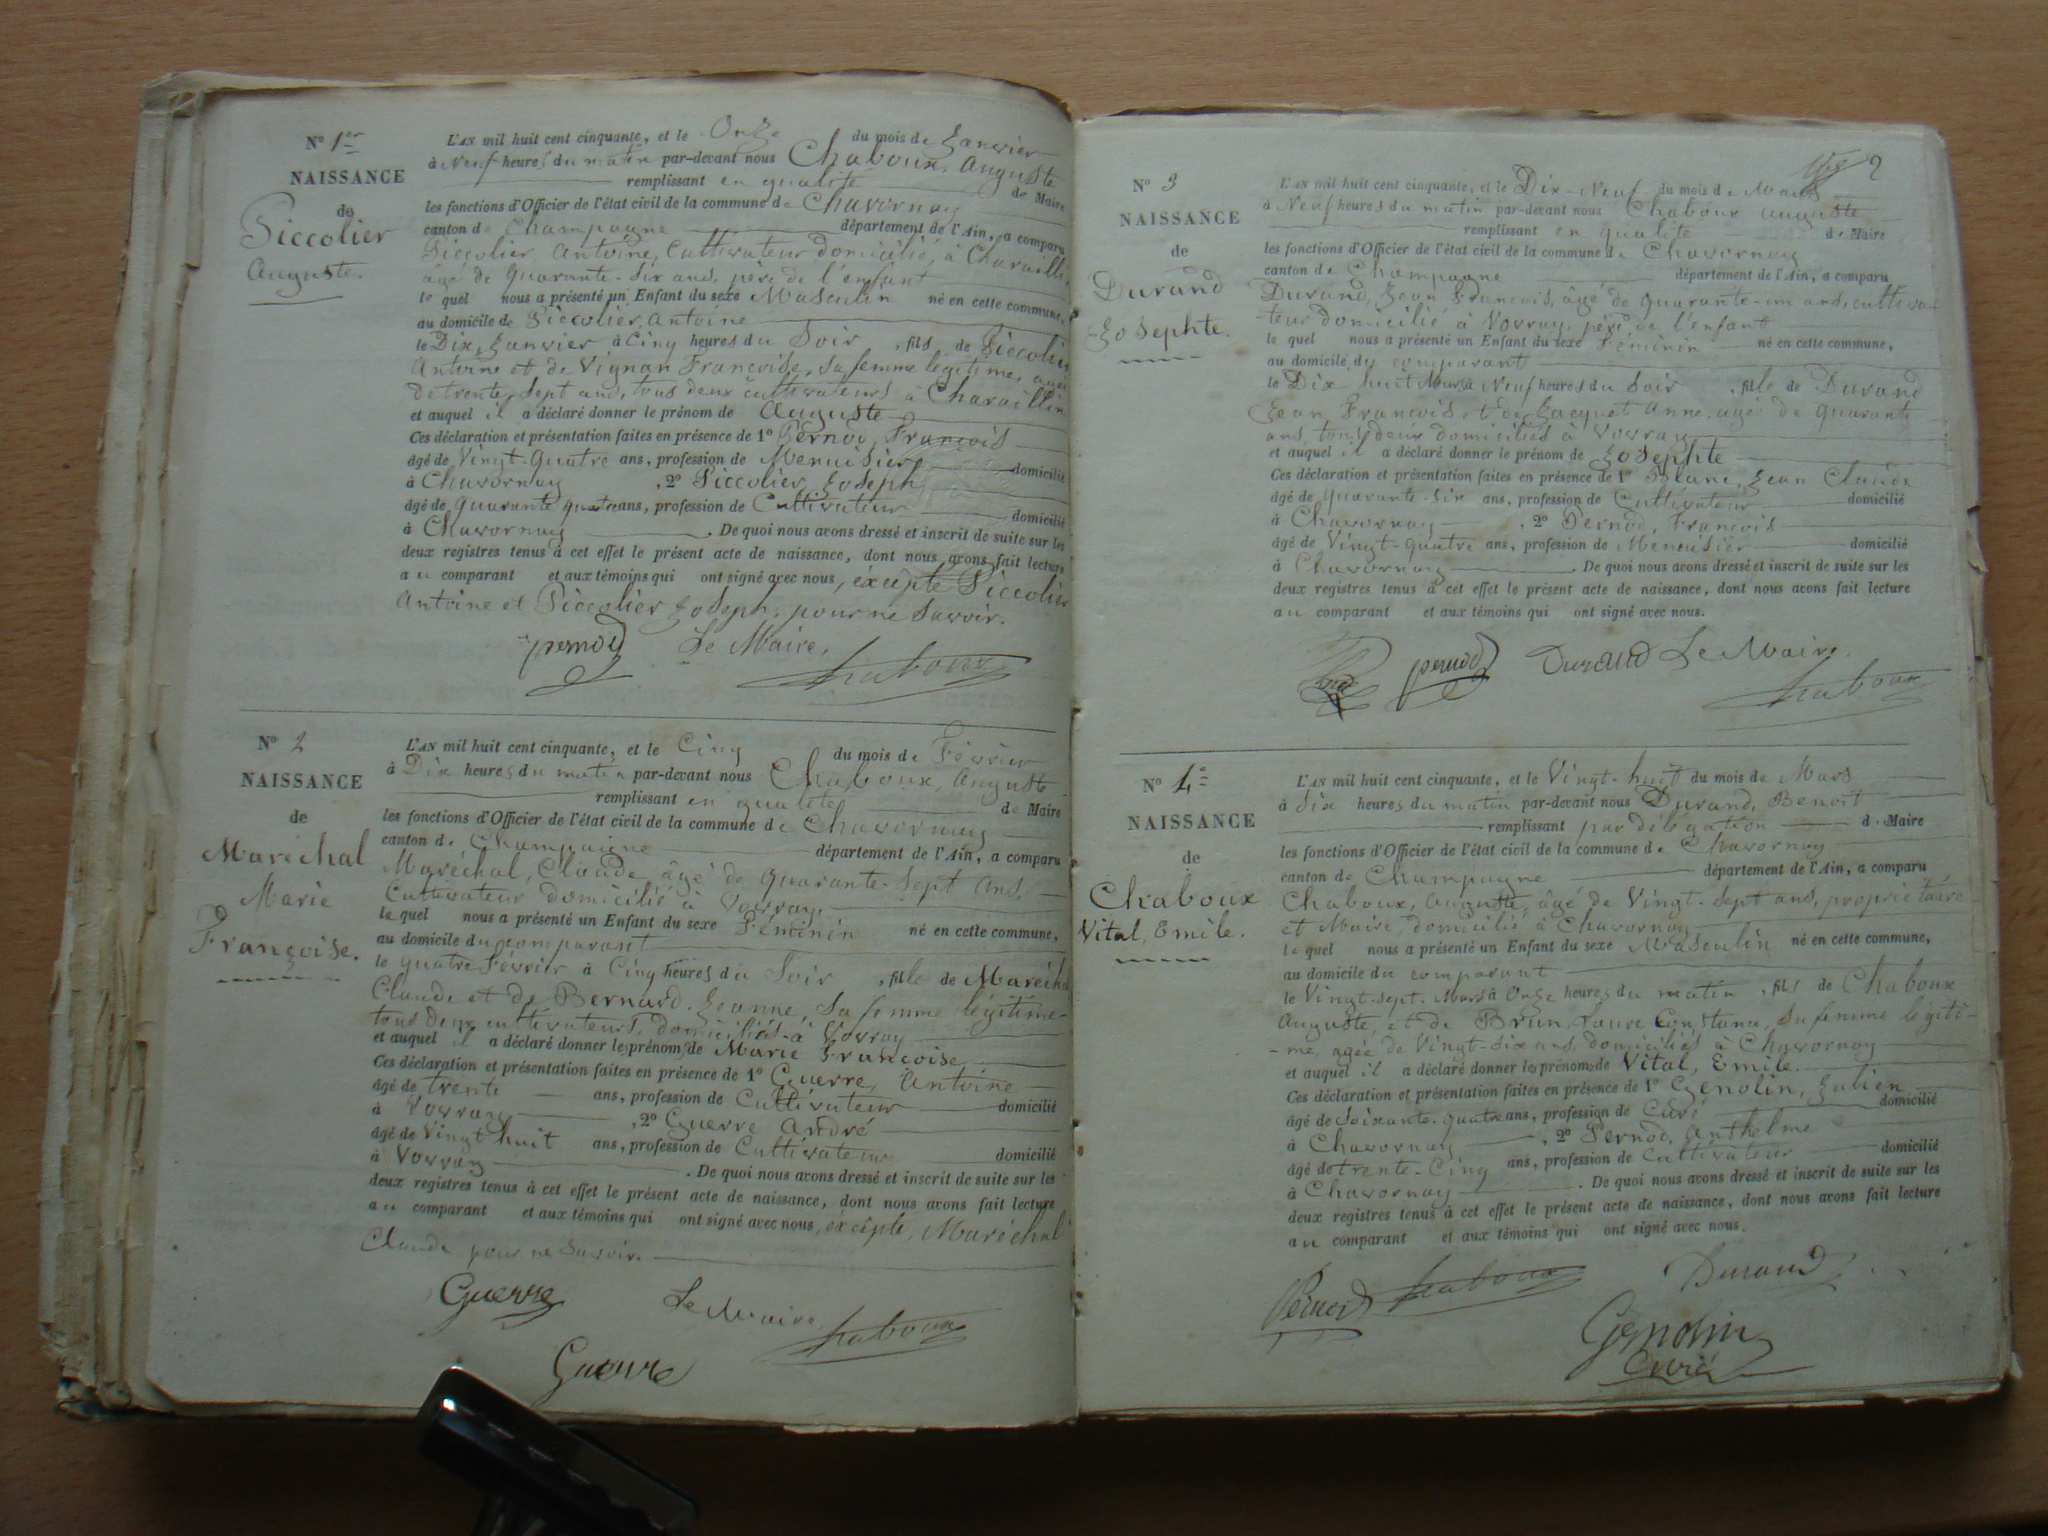 N° 1er
NAISSANCE
de
Piccolier
Auguste.
L'AN mil huit cent cinquante, et le Onze du mois de Janvier
à Neuf heures du matin par-devant nous Chaboux, Auguste
remplissant en qualité de Maire
les fonctions d'Officier de l'état civil de la commune de Chavornay
canton de Champagne département de l'Ain, a comparu
Piccolier, Antoine, Cultivateur domicilié, à Charaillin,
âgé de Quarante-six ans, père de l'enfant
le quel nous a présenté un Enfant du sexe Masculin né en cette commune,
au domicile de Piccolier, Antoine
le Dix, Janvier à Cinq heures du Soir, fils de Piccolier
Antoine et de Vignan Françoise, Sa femme légitime, agée
de trente, sept ans, tous deux cultivateurs à Charaillin
et auquel il a déclaré donner le prénom de Auguste
Ces déclaration et présentation faites en présence de 1° Pernod, François
âgé de Vingt-Quatre ans, profession de Menuisier domicilié
à Chavornay, 2° Piccolier, Joseph
âgé de quarante quatre ans, profession de Cultivateur domicilié
à Chavornay. De quoi nous avons dressé et inscrit de suite sur les
deux registres tenus à cet effet le présent acte de naissance, dont nous avons fait lecture
au comparant et aux témoins qui ont signé avec nous, éxcepté Piccolier
Antoine et Piccolier Joseph, pour ne Savoir.
pernod Le Maire, Chaboux
N° 2
NAISSANCE
de
Maréchal
Marie
Françoise.
L'AN mil huit cent cinquante, et le Cinq du mois de Février
à Dix heures du matin par-devant nous Chaboux, Auguste
remplissant en qualité de Maire
les fonctions d'Officier de l'état civil de la commune de Chavornay
canton de Champaigne département de l'Ain, a comparu
Maréchal, Claude, âgé de quarante-sept ans,
Cultivateur domicilié à Vovray,
le quel nous a présenté un Enfant du sexe Féminin né en cette commune,
au domicile du comparant
le quatre Février à Cinq heures du Soir, fille de Maréchal
Claude et de Bernard Jeanne, Sa femme légitime
tous deux cultivateurs, domiciliés à Vovray
et auquel il a déclaré donner les prénom de Marie Françoise
Ces déclaration et présentation faites en présence de 1° Guerre, Antoine
âgé de trente ans, profession de Cultivateur domicilié
à Vovray, 2° Guerre André
âgé de Vingt huit ans, profession de Cultivateur domicilié
à Vovray. De quoi nous avons dressé et inscrit de suite sur les
deux registres tenus à cet effet le présent acte de naissance, dont nous avons fait lecture
au comparant et aux témoins qui ont signé avec nous, éxcepté, Maréchal
Claude pour ne Savoir.
Guerre Le Maire Chaboux
Guerre
2
N° 3
NAISSANCE
de
Durand
Josephte.
L'AN mil huit cent cinquante, et le Dix-Neuf du mois de Mars
à Neuf heures du matin par-devant nous Chaboux Auguste
remplissant en qualité de Maire
les fonctions d'Officier de l'état civil de la commune de Chavornay
canton de Champagne département de l'Ain, a comparu
Durand, Jean François, âgé de quarante-un ans, cultiva-
-teur domicilié à Vovray, père de l'enfant
le quel nous a présenté un Enfant du sexe Féminin né en cette commune,
au domicile du comparant
le Dix huit Mars à Neuf heures du Soir, fille de Durand
Jean François et de Jacquet Anne, agée de quarante
ans, tous deux domiciliés à Vovray
et auquel il a déclaré donner le prénom de Josephte
Ces déclaration et présentation faites en présence de 1° Blanc, Jean Claude
âgé de quarante-six ans, profession de Cultivateur domicilié
à Chavornay, 2° Pernod, François
âgé de Vingt-quatre ans, profession de Menuisier domicilié
à Chavornay. De quoi nous avons dressé et inscrit de suite sur les
deux registres tenus à cet effet le présent acte de naissance, dont nous avons fait lecture
au comparant et aux témoins qui ont signé avec nous.
pernod Durand Le Maire. Chaboux
N° 4
NAISSANCE
de
Chaboux
Vital, Emile.
L'AN mil huit cent cinquante, et le Vingt-huit du mois de Mars
à Six heures du matin par-devant nous Durand, Benoit
remplissant par délégation de Maire
les fonctions d'Officier de l'état civil de la commune de Chavornay
canton de Champagne département de l'Ain, a comparu
Chaboux, Auguste, âgé de Vingt-sept ans, propriétaire
et Maire, domicilié à Chavornay
le quel nous a présenté un Enfant du sexe Masculin né en cette commune,
au domicile du comparant
le Vingt-sept Mars à Onze heures du matin, fils de Chaboux
Auguste, et de Brun, Laure Constance, Sa femme légiti-
-me, agée de Vingt-six ans, domiciliés à Chavornay
et auquel il a déclaré donner les prénom de Vital, Emile.
Ces déclaration et présentation faites en présence de 1° Genolin, Julien
âgé de Soixante-quatre ans, profession de Curé domicilié
à Chavornay, 2° Pernod, Anthelme
âgé de trente-Cinq ans, profession de Cultivateur domicilié
à Chavornay. De quoi nous avons dressé et inscrit de suite sur les
deux registres tenus à cet effet le présent acte de naissance, dont nous avons fait lecture
au comparant et aux témoins qui ont signé avec nous.
Pernod Chaboux Durand
Genolin
Curé